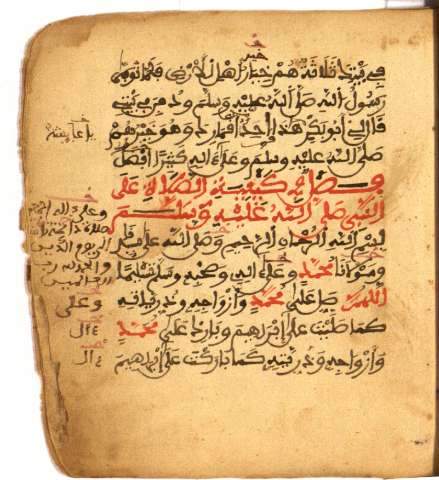 في بيتك ثلاثة هم خيار اهل الارض فلما توفي
رسول الله صلى الله عليه وسلم ودفن في بيتي
قال لي ابو بكر هذا واحد اقمارك وهو خيرهم
يا عايشة
صلى الله عليه وسلم وعلى اله كثيرا
فصل في كيفية الصلاة على
النبي صلى الله عليه وسلم
بسم الله الرحمن الرحيم وصلى الله على
ومولانا محمد وعلى اله وصحبه وسلم تسليما
اللهم صل على محمد وازواجه وذريته
وعلى
كما صليت على ابراهيم وبارك على محمد
ءال
وازواجه وذريته كما باركت على ابراهيم
ءال